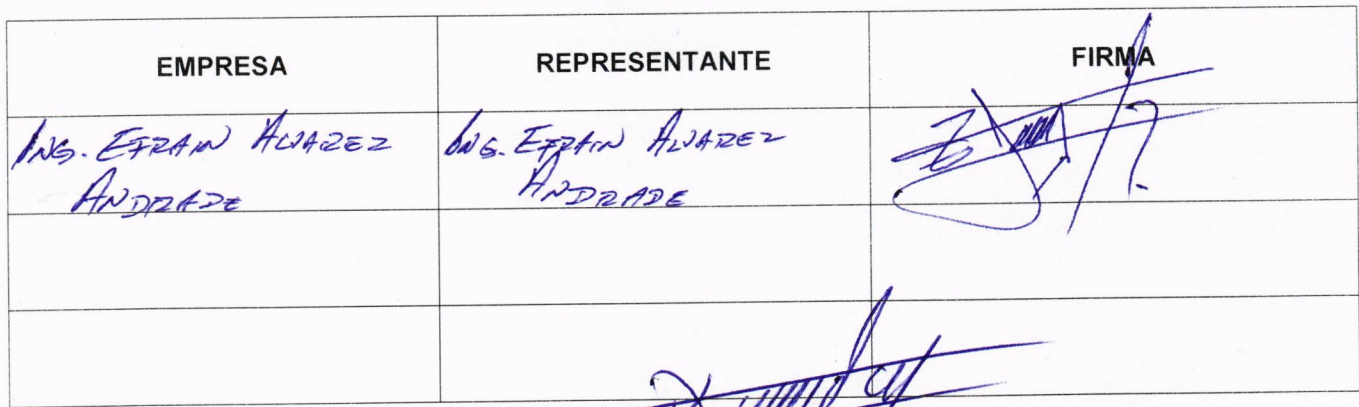 EMPRESA REPRESENTANTE FIRMA
ING. EFRAIN ALVAREZ ING. EFRAIN ALVAREZ
ANDRADE ANDRADE